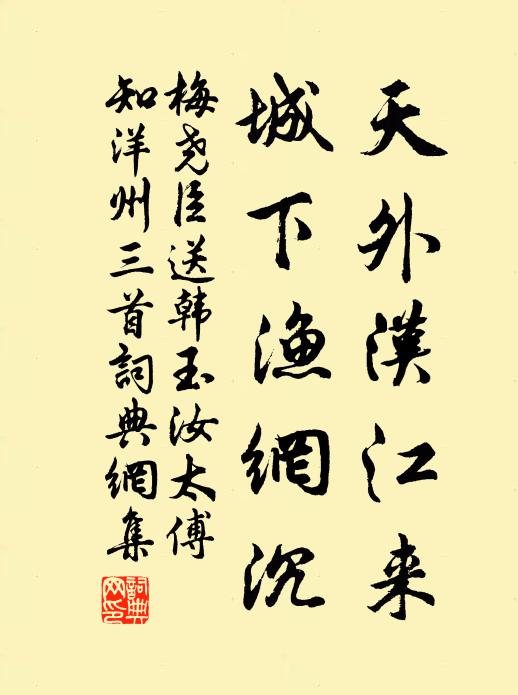 天外漢江来
城下漁網沉
梅尧臣送韩玉汝太傅
知洋州三首詞典網集
詞典網印